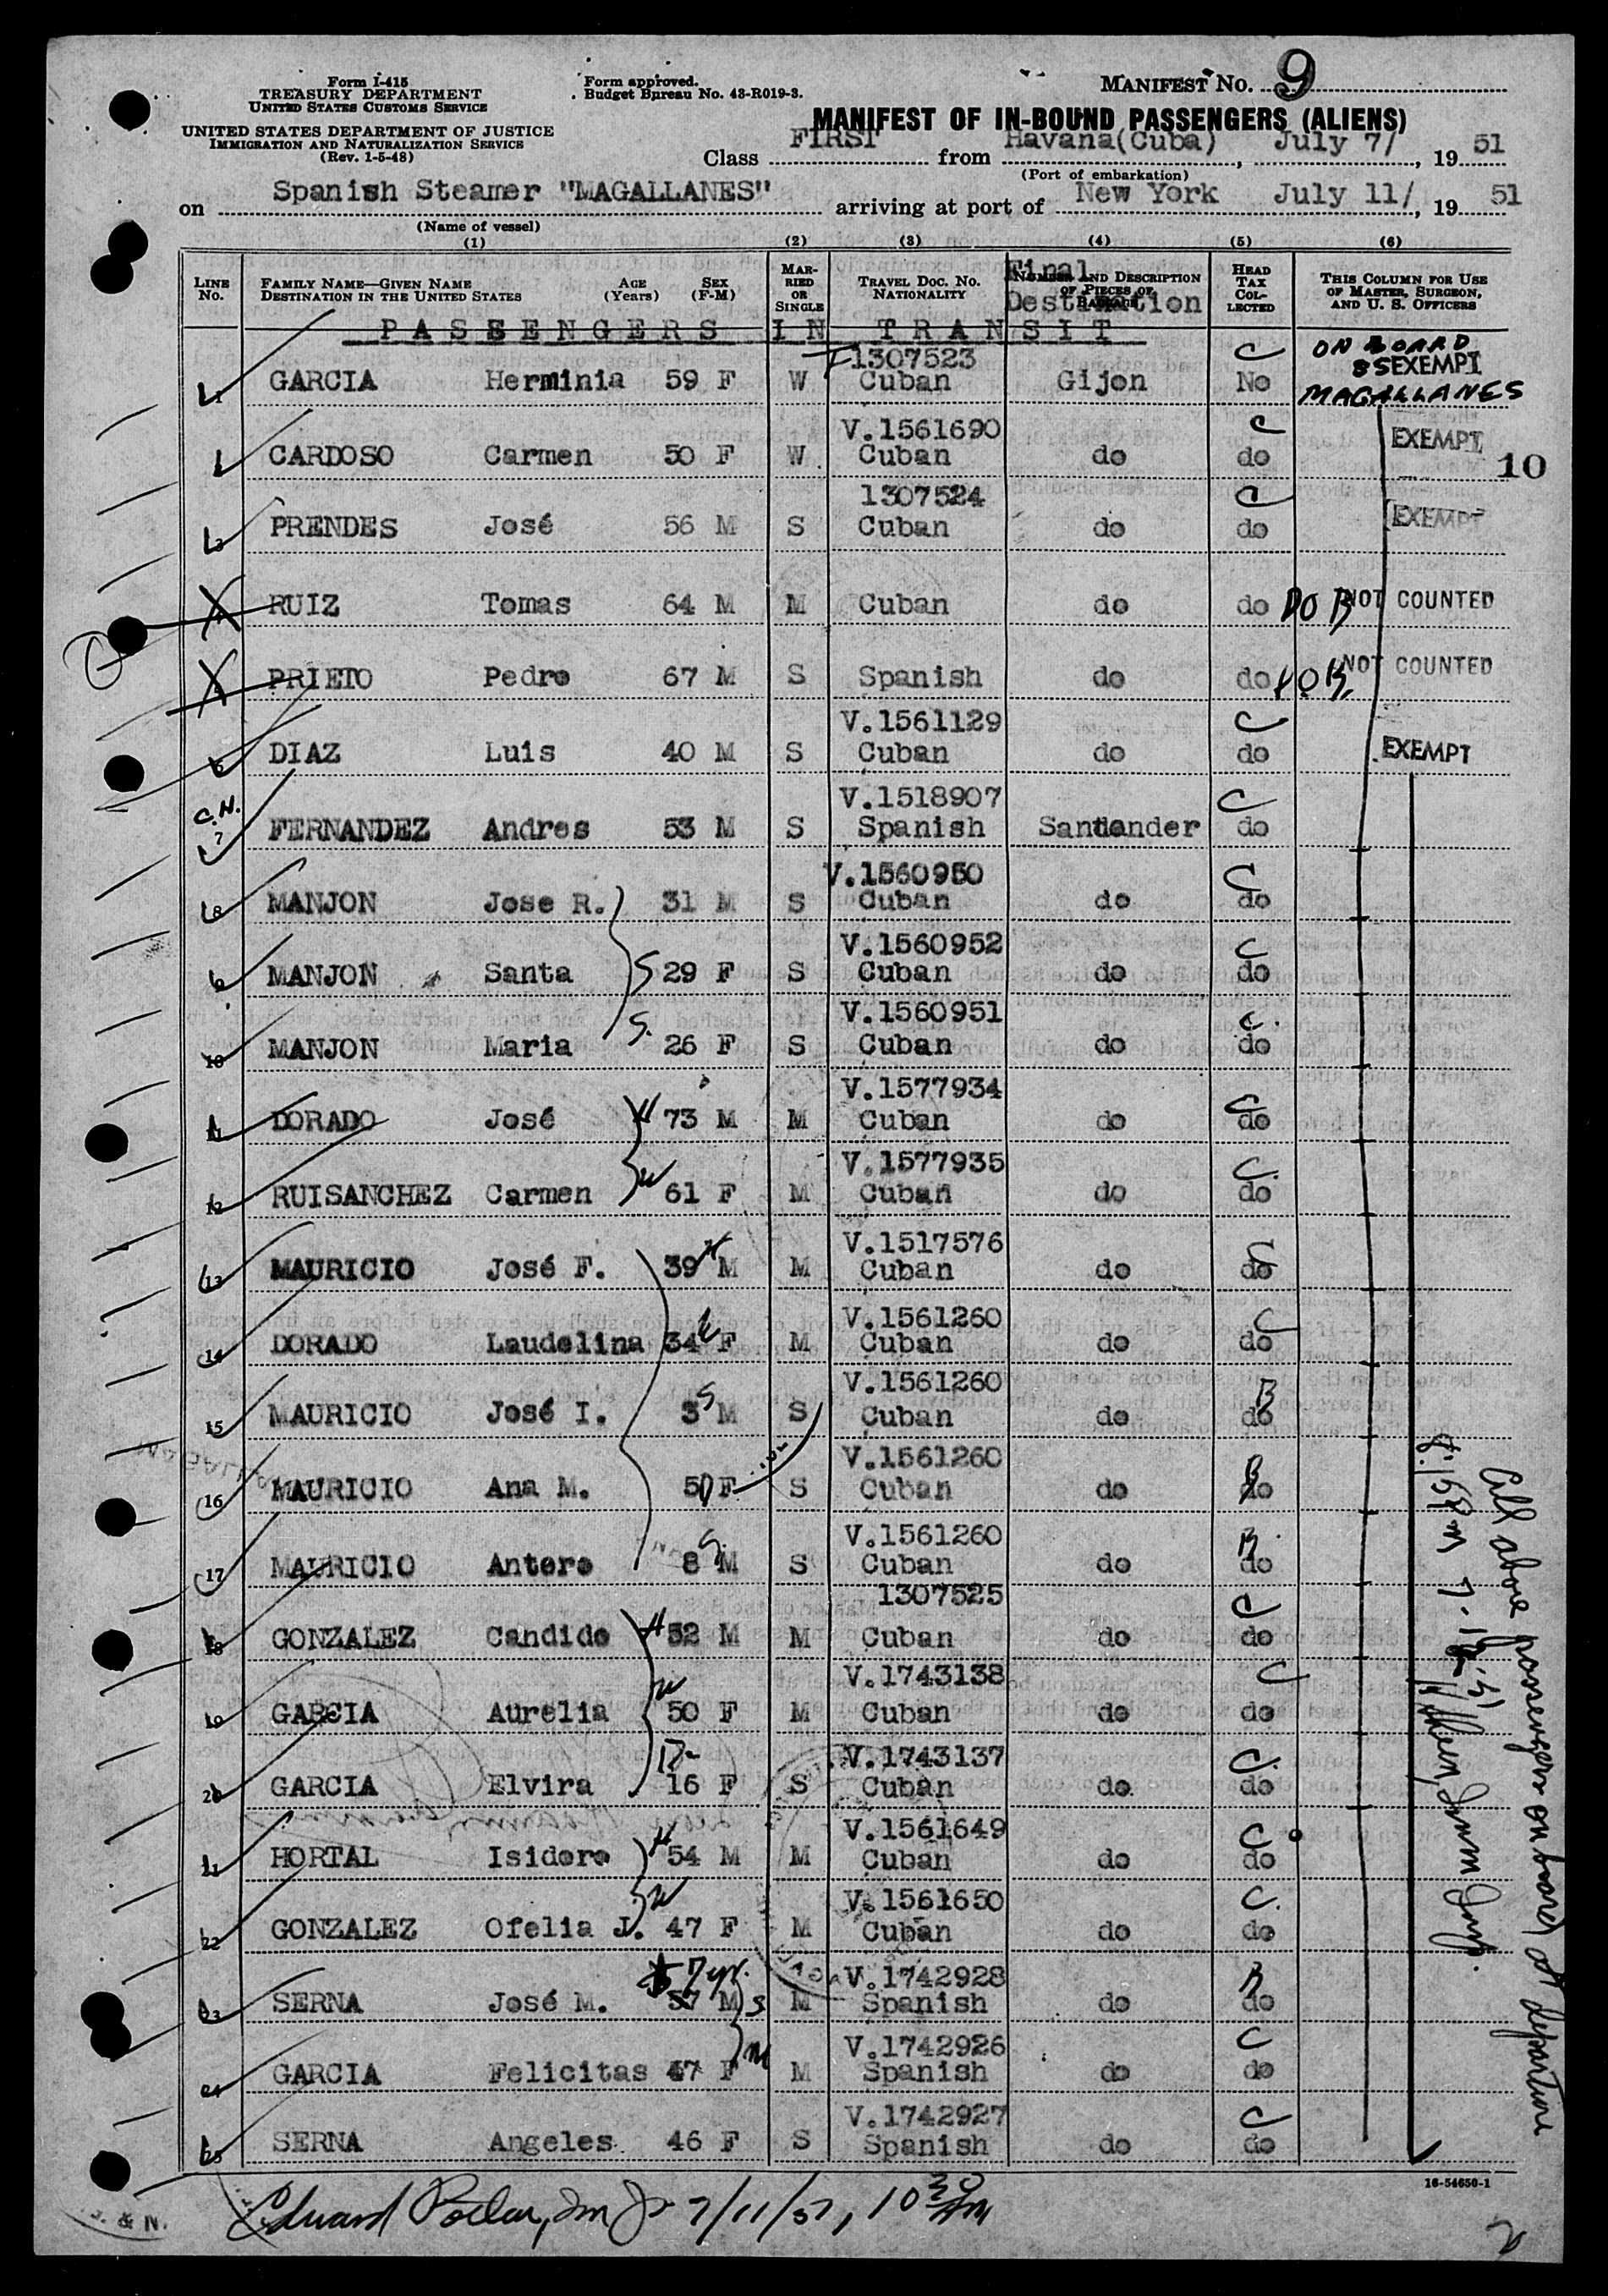 Form I-415
TREASURY DEPARTMENT
UNITED STATES CUSTOMS SERVICE
UNITED STATES DEPARTMENT OF JUSTICE
IMMIGRATION AND NATURALIZATION SERVICE
(Rev. 1-5-48)
Form approved.
Budget Bureau No. 43-R019-3.
MANIFEST No. 9
MANIFEST OF IN-BOUND PASSENGERS (ALIENS)
Class FIRST from Havana(Cuba), July 7/, 19 51
(Port of embarkation)
on Spanish Steamer "MAGALLANES" arriving at port of New York July 11/, 19 51
(Name of vessel)
(1) (2) (3) (4) (5) (6)
LINE No. FAMILY NAME—GIVEN NAME AGE SEX MARRIED OR SINGLE TRAVEL DOC. No. NUMBER AND DESCRIPTION OF PIECES OF BAGGAGE HEAD TAX COLLECTED THIS COLUMN FOR USE OF MASTER, SURGEON, AND U. S. OFFICERS
DESTINATION IN THE UNITED STATES (Years) (F-M) NATIONALITY Final Destination
PASSENGERS IN TRANSIT
1307523 C ON BOARD
GARCIA Herminia 59 F W Cuban Gijon No SS EXEMPT
MAGALLANES
V.1561690 C EXEMPT
CARDOSO Carmen 50 F W Cuban do do 10
1307524 C EXEMPT
3 PRENDES José 56 M S Cuban do do
RUIZ Tomas 64 M M Cuban do do NOT COUNTED
PRIETO Pedro 67 M S Spanish do do NOT COUNTED
V.1561129 C
6 DIAZ Luis 40 M S Cuban do do EXEMPT
C.H. V.1518907 C
7 FERNANDEZ Andres 53 M S Spanish Santander do
V.1560950 C
8 MANJON Jose R. 31 M S Cuban do do
V.1560952 C
9 MANJON Santa S 29 F S Cuban do do
V.1560951 C
10 MANJON Maria S. 26 F S Cuban do do
V.1577934 C
11 DORADO José H 73 M M Cuban do do
V.1577935 C.
12 RUISANCHEZ Carmen W 61 F M Cuban do do
V.1517576 C
13 MAURICIO José F. 39 H M M Cuban do do
V.1561260 C
14 DORADO Laudelina 34 W F M Cuban do do
V.1561260 B
15 MAURICIO José I. 3 S M S Cuban do do
V.1561260 B
16 MAURICIO Ana M. 5 D F S Cuban do do
V.1561260 B
17 MAURICIO Antero 8 S M S Cuban do do
1307525 C
18 GONZALEZ Candido H 52 M M Cuban do do
V.1743138 C
19 GARCIA Aurelia W 50 F M Cuban do do
V.1743137 C.
20 GARCIA Elvira D 16 F S Cuban do do
V.1561649 C
21 HORTAL Isidoro H 54 M M Cuban do do
V.1561650 C.
22 GONZALEZ Ofelia J. W 47 F M Cuban do do
7 yr. V.1742928 B
23 SERNA José M. 57 M S M Spanish do do
V.1742926 C
24 GARCIA Felicitas 47 F M M Spanish do do
V.1742927 C
25 SERNA Angeles 46 F S Spanish do do
All above passengers on board at departure
16-54650-1
7/11/51, 10 30 AM
2